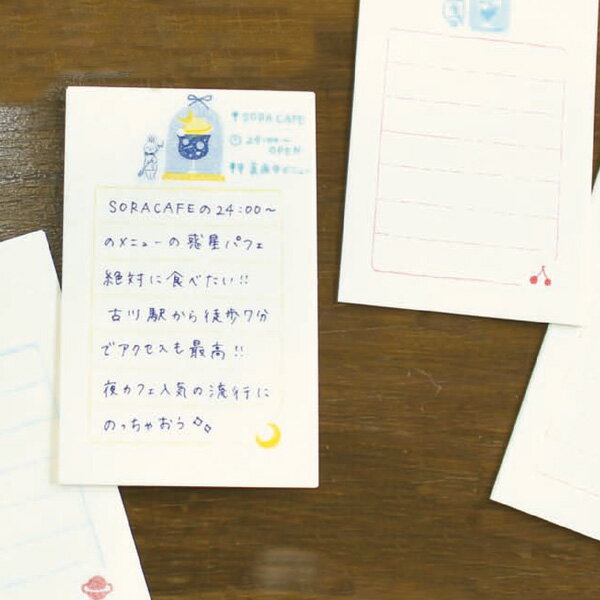 SORA CAFE
24:00〜
OPEN
真夜中メニュー
SORACAFEの24:00〜
のメニューの惑星パフェ
絶対に食べたい!!
古川駅から徒歩7分
でアクセスも最高!!
夜カフェ人気の流行に
のっちゃおう